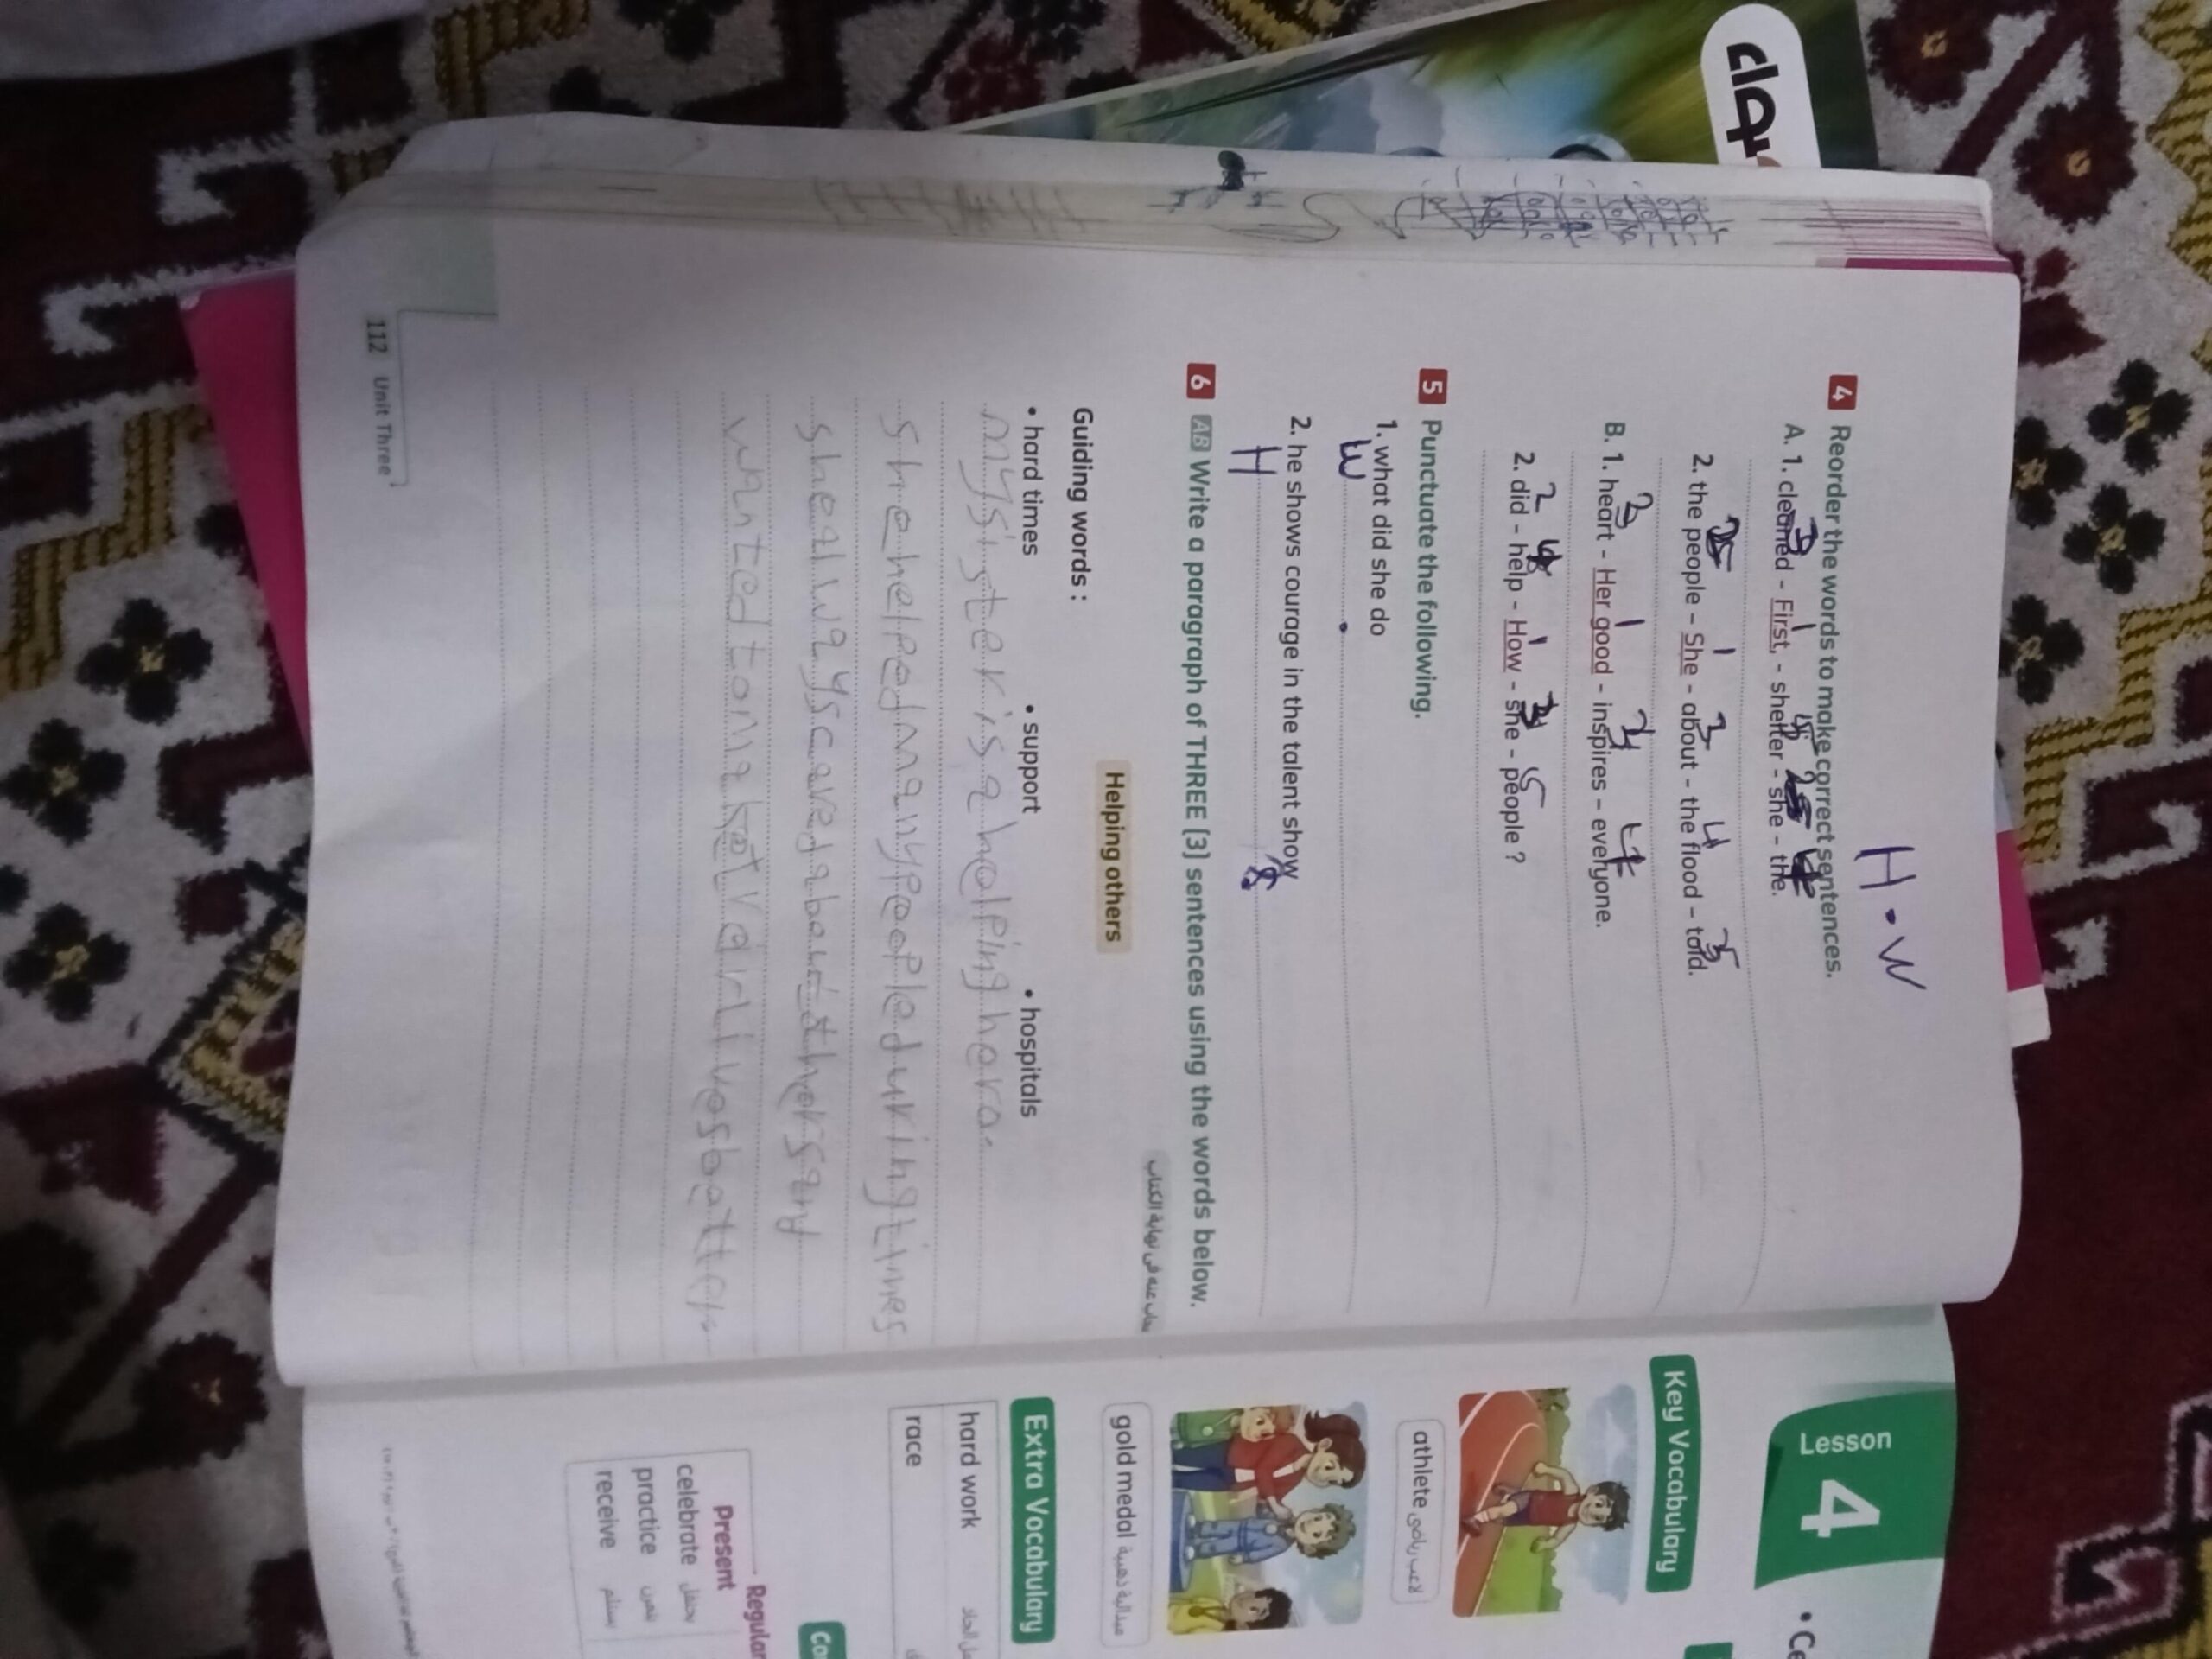 H.W
4 Reorder the words to make correct sentences.
A. 1. cleaned - First, - shelter - she - the.
3 1 5 2 4
2. the people – She - about - the flood – told.
1 3 4
B. 1. heart - Her good - inspires – everyone.
2 1 3 4
2. did - help - How - she - people ?
2 4 1 3 5
5 Punctuate the following.
1. what did she do
W .
2. he shows courage in the talent show
H
6 AB Write a paragraph of THREE (3) sentences using the words below.
مجاب عنه في نهاية الكتاب
Helping others
Guiding words :
• hard times • support • hospitals
my sister is a helping hero.
she helped many people during times
she always cared about others and
wanted to make lives better.
112 Unit Three
Lesson
4
Key Vocabulary
athlete لاعب رياضي
gold medal ميدالية ذهبية
Extra Vocabulary
hard work
race
Regular
Present
celebrate يحتفل
practice
receive يستلم